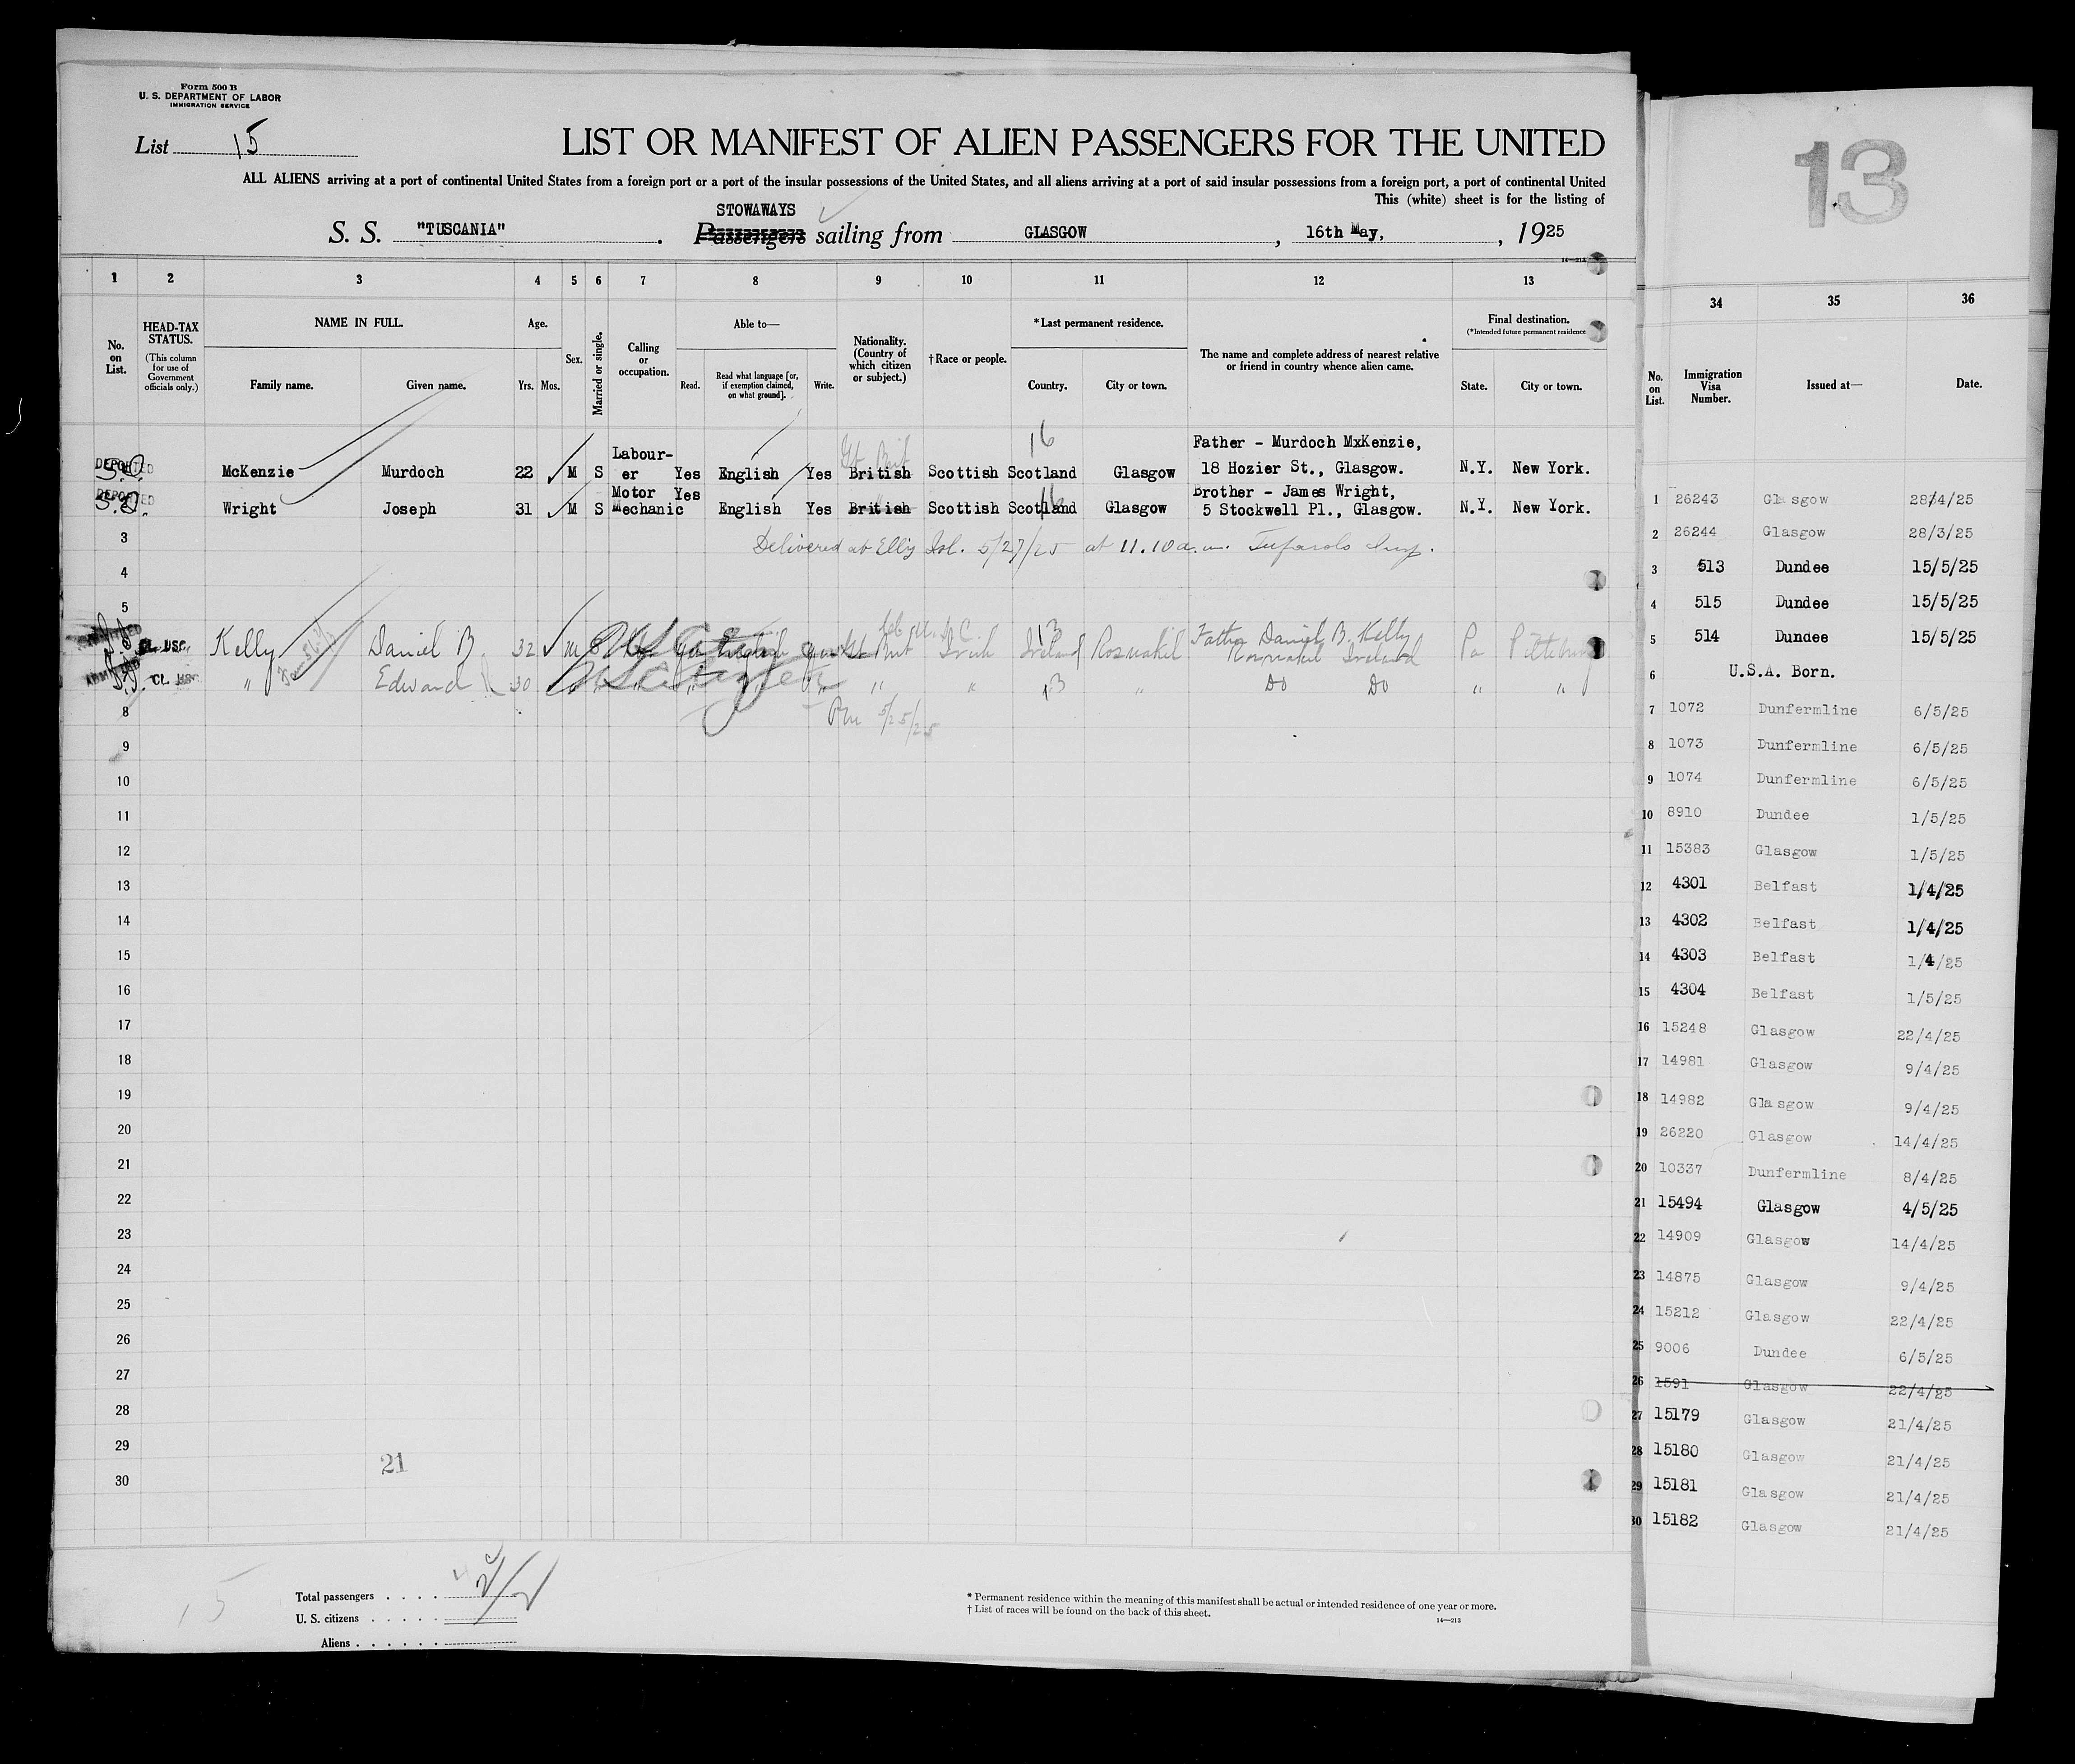 Form 500 B
U. S. DEPARTMENT OF LABOR
IMMIGRATION SERVICE
List 15
LIST OR MANIFEST OF ALIEN PASSENGERS FOR THE UNITED
ALL ALIENS arriving at a port of continental United States from a foreign port or a port of the insular possessions of the United States, and all aliens arriving at a port of said insular possessions from a foreign port, a port of continental United
This (white) sheet is for the listing of
STOWAWAYS
S. S. "TUSCANIA". Passengers sailing from GLASGOW, 16th May, 1925
14—213
1 2 3 4 5 6 7 8 9 10 11 12 13
No. on List.
HEAD-TAX STATUS.
(This column for use of Government officials only.)
NAME IN FULL.
Family name. Given name.
Age.
Yrs. Mos.
Sex.
Married or single.
Calling or occupation.
Able to—
Read. Read what language [or, if exemption claimed, on what ground]. Write.
Nationality. (Country of which citizen or subject.)
† Race or people.
* Last permanent residence.
Country. City or town.
The name and complete address of nearest relative or friend in country whence alien came.
Final destination.
(*Intended future permanent residence
State. City or town.
16
DEPORTED McKenzie Murdoch 22 M S Labour-er Yes English Yes British Scottish Scotland Glasgow Father - Murdoch MxKenzie, 18 Hozier St., Glasgow. N.Y. New York.
DEPORTED Wright Joseph 31 M S Motor Mechanic Yes English Yes British Scottish Scotland Glasgow Brother - James Wright, 5 Stockwell Pl., Glasgow. N.Y. New York.
3 Delivered at Ellis Isl. 5/27/25 at 11.10 a.m.
4
5
ADMITTED CL. USC. Kelly Daniel B. 32 M S English Irish Ireland Father Daniel B. Kelly Ireland Pa Pittsburg
ADMITTED CL. USC. " Edward 30 " " " " " 13 " Do Do " "
8 5/25/25
9
10
11
12
13
14
15
16
17
18
19
20
21
22
23
24
25
26
27
28
29
30
21
15
Total passengers
U. S. citizens
Aliens
* Permanent residence within the meaning of this manifest shall be actual or intended residence of one year or more.
† List of races will be found on the back of this sheet.
14—213
13
34 35 36
No. on List. Immigration Visa Number. Issued at— Date.
1 26243 Glasgow 28/4/25
2 26244 Glasgow 28/3/25
3 513 Dundee 15/5/25
4 515 Dundee 15/5/25
5 514 Dundee 15/5/25
6 U.S.A. Born.
7 1072 Dunfermline 6/5/25
8 1073 Dunfermline 6/5/25
9 1074 Dunfermline 6/5/25
10 8910 Dundee 1/5/25
11 15383 Glasgow 1/5/25
12 4301 Belfast 1/4/25
13 4302 Belfast 1/4/25
14 4303 Belfast 1/4/25
15 4304 Belfast 1/5/25
16 15248 Glasgow 22/4/25
17 14981 Glasgow 9/4/25
18 14982 Glasgow 9/4/25
19 26220 Glasgow 14/4/25
20 10337 Dunfermline 8/4/25
21 15494 Glasgow 4/5/25
22 14909 Glasgow 14/4/25
23 14875 Glasgow 9/4/25
24 15212 Glasgow 22/4/25
25 9006 Dundee 6/5/25
26 1591 Glasgow 22/4/25
27 15179 Glasgow 21/4/25
28 15180 Glasgow 21/4/25
29 15181 Glasgow 21/4/25
30 15182 Glasgow 21/4/25